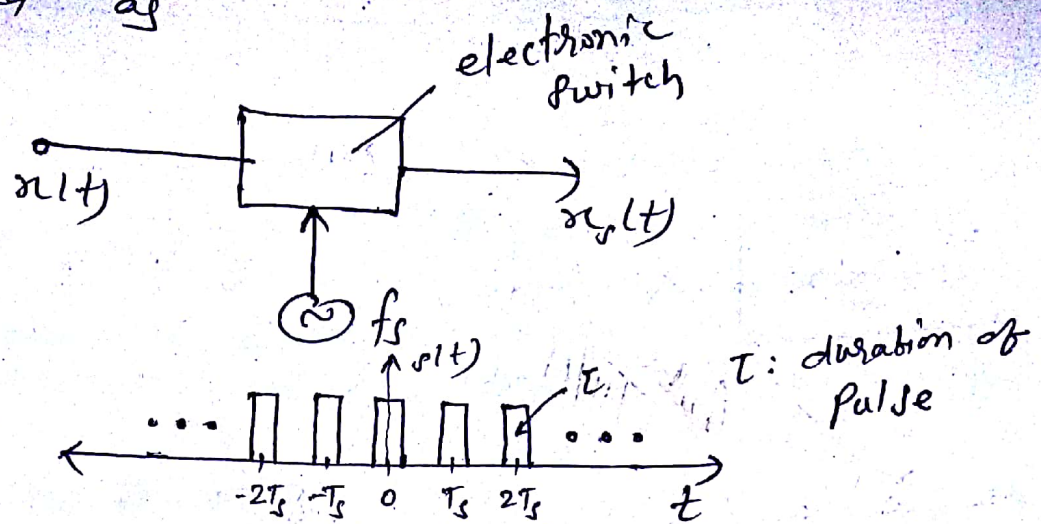 as
electronic
switch
x(t)
xₛ(t)
fₛ
s(t)
τ
τ: duration of
Pulse
-2Tₛ -Tₛ 0 Tₛ 2Tₛ t